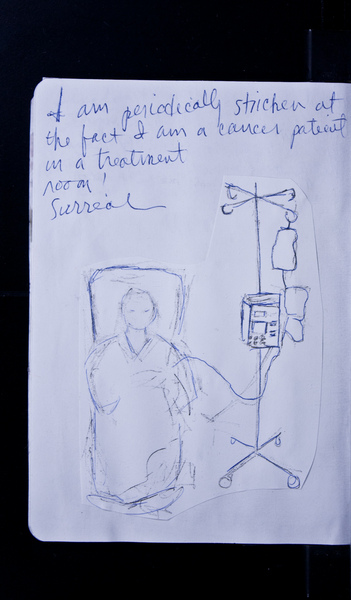 I am periodically stricken at
the fact I am a cancer patient
in a treatment
room!
Surreal